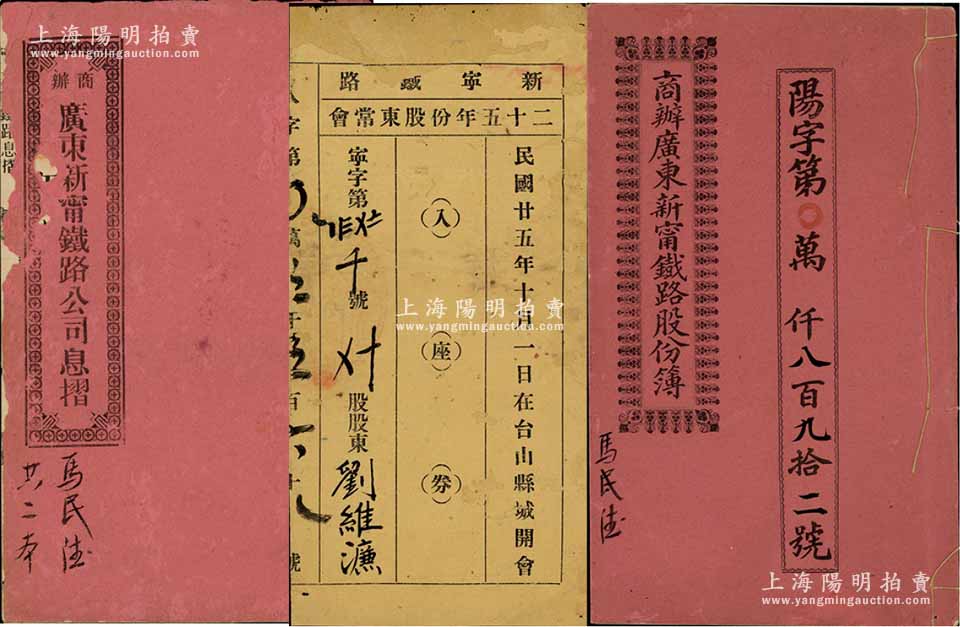 上海陽明拍賣
www.yangmingauction.com
商辦
廣東新甯鐵路公司息摺
馬民
共二本
路息摺
新寧鐵路
二十五年份股東常會
民國廿五年十月一日在台山縣城開會
(入)(座)(券)
寧字第
千號
股股東劉維濂
字第〇萬
百
號
上海陽明拍賣
www.yangmingauction.com
上海陽明拍賣
www.yangmingauction.com
陽字第〇萬 仟八百九拾二號
商辦廣東新甯鐵路股份簿
馬民
上海陽明拍賣
www.yangmingauction.com